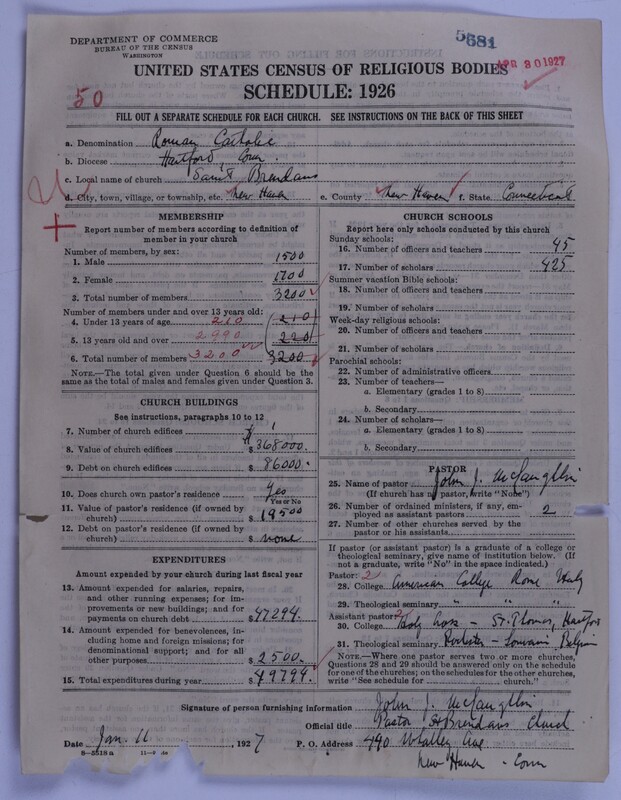 DEPARTMENT OF COMMERCE
BUREAU OF THE CENSUS
WASHINGTON
5681
APR 30 1927
UNITED STATES CENSUS OF RELIGIOUS BODIES
SCHEDULE: 1926
50
FILL OUT A SEPARATE SCHEDULE FOR EACH CHURCH. SEE INSTRUCTIONS ON THE BACK OF THIS SHEET
a. Denomination Roman Catholic
b. Diocese Hartford Conn.
c. Local name of church Saint Brendans
d. City, town, village, or township, etc. New Haven e. County New Haven f. State Connecticut
MEMBERSHIP
Report number of members according to definition of
member in your church
Number of members, by sex:
1. Male 1500
2. Female 1700
3. Total number of members 3200
Number of members under and over 13 years old:
4. Under 13 years of age 210 210
5. 13 years old and over 2990 220
6. Total number of members 3200 3200
NOTE.—The total given under Question 6 should be
same as the total of males and females given under Question 3.
CHURCH BUILDINGS
See instructions, paragraphs 10 to 12
7. Number of church edifices 1
8. Value of church edifices $ 368000.
9. Debt on church edifices $ 86000.
10. Does church own pastor's residence? Yes
Yes or No
11. Value of pastor's residence (if owned by
church) $ 19500
12. Debt on pastor's residence (if owned by
church) $ none
EXPENDITURES
Amount expended by your church during last fiscal year
13. Amount expended for salaries, repairs,
and other running expenses; for im-
provements or new buildings; and for
payments on church debt $ 47294.
14. Amount expended for benevolences, in-
cluding home and foreign missions; for
denominational support; and for all
other purposes $ 2500.
15. Total expenditures during year $ 49794.
CHURCH SCHOOLS
Report here only schools conducted by this church
Sunday schools:
16. Number of officers and teachers 45
17. Number of scholars 425
Summer vacation Bible schools:
18. Number of officers and teachers
19. Number of scholars
Week-day religious schools:
20. Number of officers and teachers
21. Number of scholars
Parochial schools:
22. Number of administrative officers
23. Number of teachers—
a. Elementary (grades 1 to 8)
b. Secondary
24. Number of scholars—
a. Elementary (grades 1 to 8)
b. Secondary
PASTOR
25. Name of pastor John J. McLaughlin
(If church has no pastor, write "None")
26. Number of ordained ministers, if any, em-
ployed as assistant pastors 2
27. Number of other churches served by the
pastor or his assistants
If pastor (or assistant pastor) is a graduate of a college or
theological seminary, give name of institution below. (If
not a graduate, write "No" in the space indicated.)
Pastor: 2
28. College American College Rome Italy
29. Theological seminary " " "
Assistant pastor: 2
30. College Holy Cross - St. Thomas, Hartford
31. Theological seminary Rochester - Louvain Belgium
NOTE.—Where one pastor serves two or more churches,
Questions 28 and 29 should be answered only on the schedule
for one of the churches; on the schedules for the other churches,
write "See schedule for church."
Signature of person furnishing information John J. McLaughlin
Official title Pastor St Brendans Church
Date Jan. 11, 1927 P. O. Address 490 Whalley Ave
New Haven - Conn
8-5518a